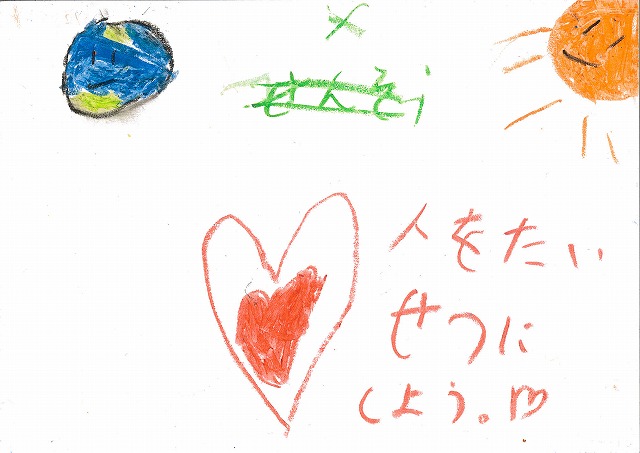 ×
せんそう
人をたい
せつに
しよう。♡